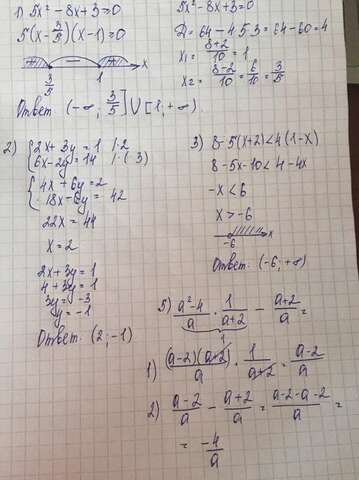 1) 5x² - 8x + 3 ≥ 0
5(x - 3/5)(x - 1) = 0
+ - + x
3/5 1
Ответ (-∞; 3/5] ∪ [1, +∞)
5x² - 8x + 3 = 0
D = 64 - 4·5·3 = 64 - 60 = 4
x₁ = (8+2)/10 = 1
x₂ = (8-2)/10 = 6/10 = 3/5
2) {2x + 3y = 1 |·2
{6x - 2y = 14 |·(·3)
{4x + 6y = 2
{18x - 6y = 42
22x = 44
x = 2
2x + 3y = 1
4 + 3y = 1
3y = -3
y = -1
Ответ: (2; -1)
3) 8 - 5(x+2) < 4(1-x)
8 - 5x - 10 < 4 - 4x
-x < 6
x > -6
-6 x
Ответ: (-6; +∞)
5) (a²-4)/a · 1/(a+2) - (a+2)/a =
1
1) (a-2)(a+2)/a · 1/(a+2) = (a-2)/a
2) (a-2)/a - (a+2)/a = (a-2-a-2)/a =
= -4/a